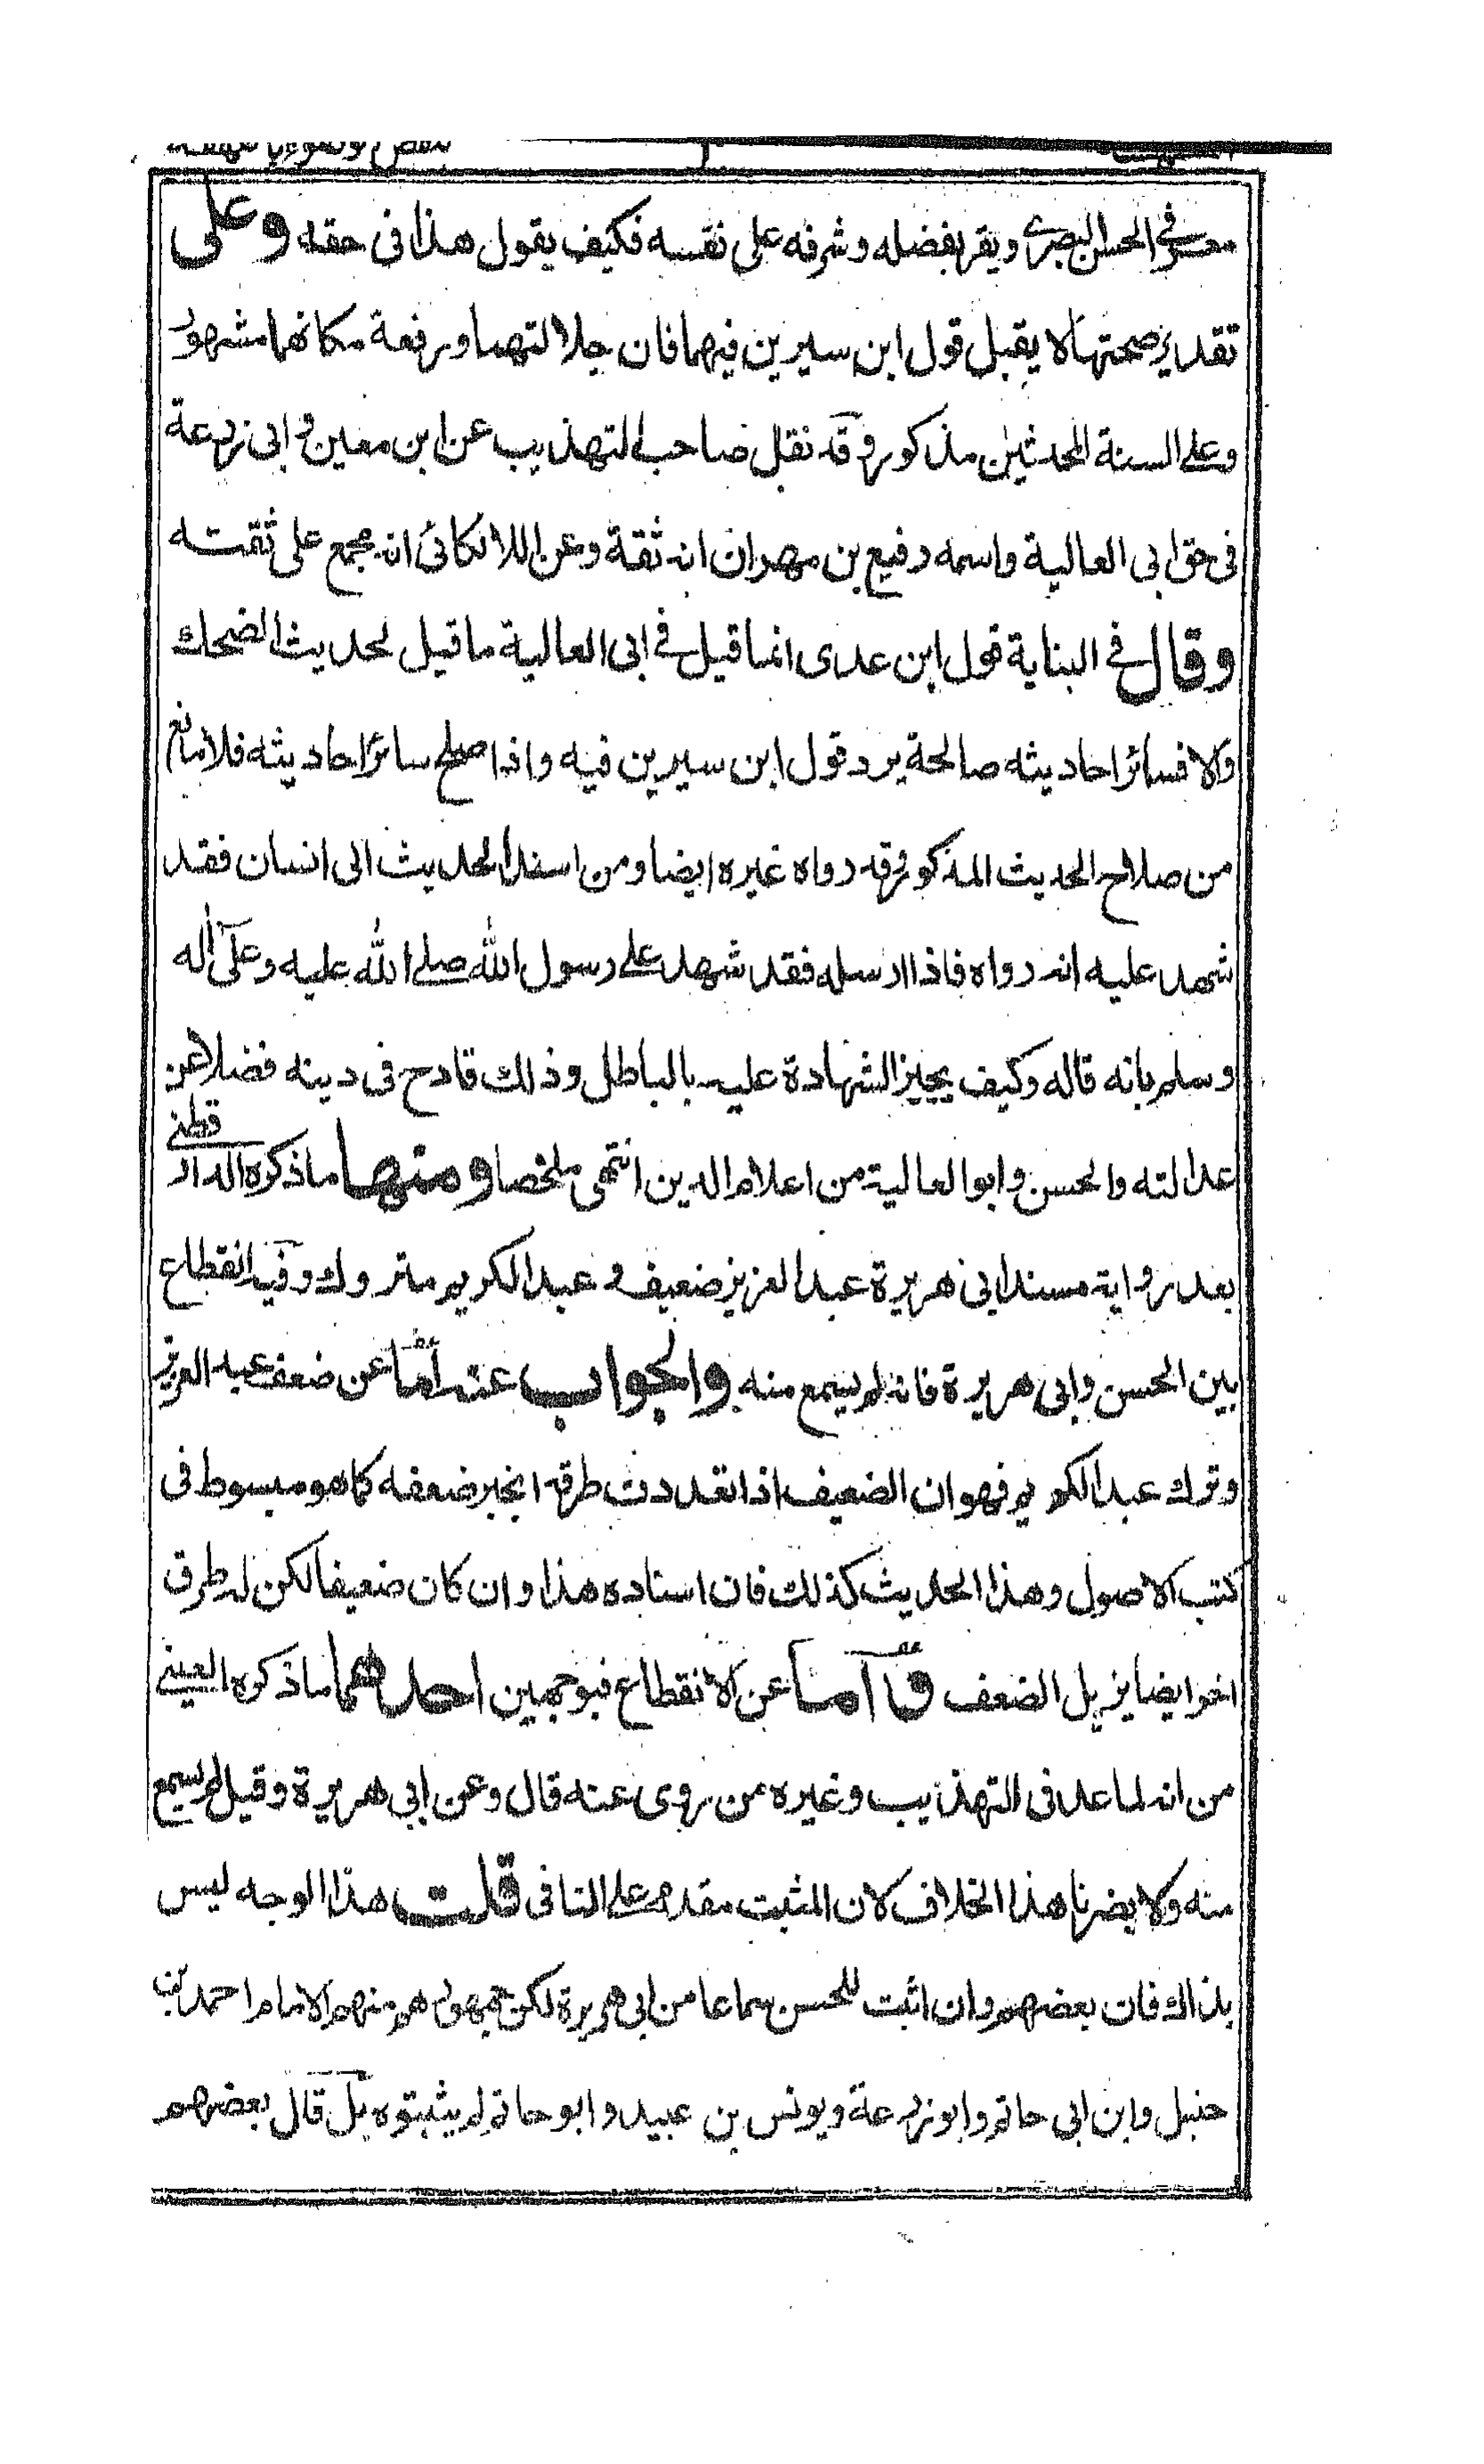 معترف الحسن البصري ويقر بفضله وشرفه على نفسه فكيف يقول هذا فى حقه وعلى
تقدير صحتها لا يقبل قول ابن سيرين فيهما فان جلالتهما ورفعة مكانهما مشهور
وعلى السنة المحدثين مذكور وقد نقل صاحب التهذيب عن ابن معين و ابى زرعة
فى حق ابى العالية واسمه رفيع بن مهران انه ثقة وعن اللالكائى انه مجمع على ثقته
وقال في البناية قول ابن عدى انما قيل في ابى العالية ما قيل لحديث الضحك
والا فسائر احاديثه صالحة يرد قول ابن سيرين فيه واذا صلح سائر احاديثه فلا مانع
من صلاح الحديث المذكور وقد رواه غيره ايضا ومن اسند الحديث الى انسان فقد
شهد عليه انه رواه فاذا ارسله فقد شهد على رسول الله صلى الله عليه وعلى آله
وسلم بانه قاله وكيف يجيز الشهادة عليه بالباطل وذلك قادح فى دينه فضلا عن
عدالته والحسن وابو العالية من اعلام الدين انتهى ملخصا ومنها ما ذكره الدارقطني
بعد رواية مسند ابى هريرة عبد العزيز ضعيف و عبد الكريم متروك وفيه انقطاع
بين الحسن وابى هريرة فانه لم يسمع منه والجواب عنه أما عن ضعف عبد العزيز
وترك عبد الكريم فهو ان الضعيف اذا تعددت طرقه انجبر ضعفه كما هو مبسوط فى
كتب الاصول وهذا الحديث كذلك فان اسناده هذا وان كان ضعيفا لكن له طرق
اخر ايضا يزيل الضعف وأما عن الانقطاع فبوجهين احدهما ما ذكره العيني
من انه لما عد فى التهذيب وغيره من روى عنه قال وعن ابي هريرة وقيل لم يسمع
منه ولا يضرنا هذا الخلاف لان المثبت مقدم على النافى قلت هذا الوجه ليس
بذاك فان بعضهم وان اثبت للحسن سماعا من ابى هريرة لكن جمهورهم منهم الامام احمد بن
حنبل وابن ابى حاتم وابو زرعة ويونس بن عبيد وابو حاتم لم يثبتوه بل قال بعضهم